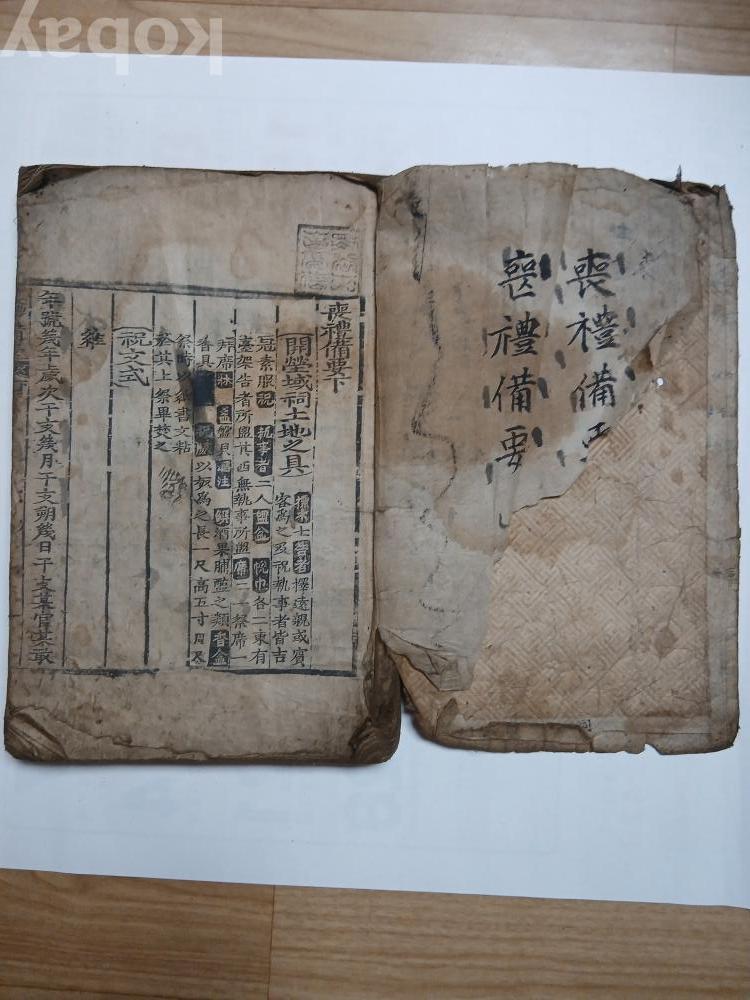 kobay
喪禮備要
喪禮備要
喪禮備要下
開塋域祠土地之具
告者擇遠親或賓
客爲之及祝執事者皆吉
冠素服祝 執事者二人盥盆 帨巾各二東有
臺架告者所盥其西無執事所盥席二一祭席一
拜席牀 盞盤具酒注 饌酒果脯醢之類香盒
香具 以板爲之長一尺高五寸周尺
祭時以紙書文粘
於其上祭畢焚之
祝文式
維
年號幾年歲次干支幾月干支朔幾日干支某官某敢